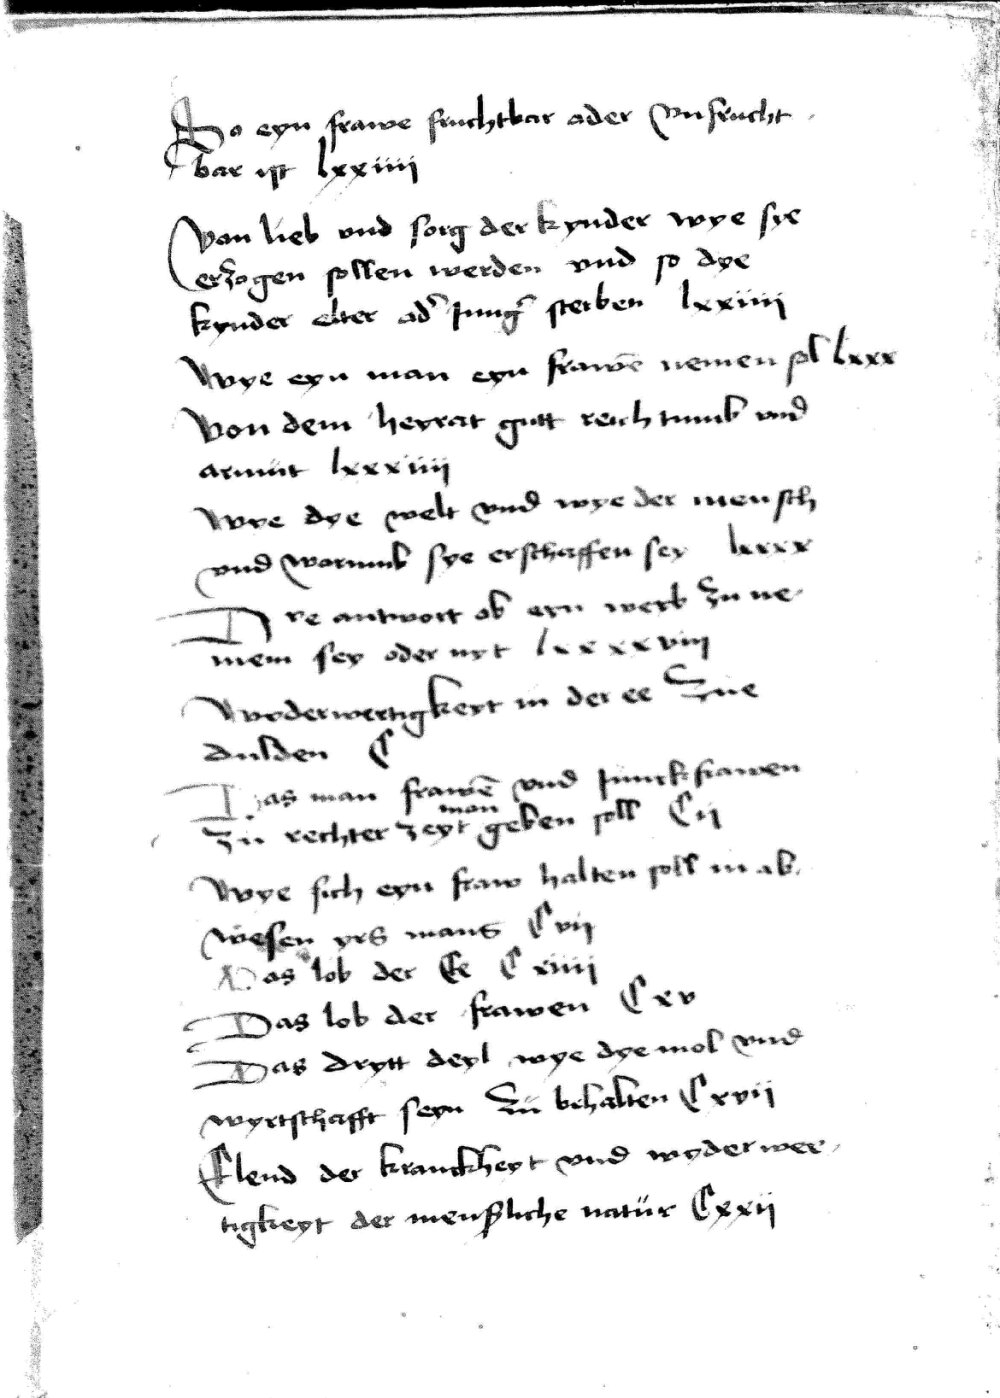 So eyn frawe fruchtbar ader vnfrucht
bar ist lxxiiii
Von lieb vnd sorg der kynder wye sye
erzogen sollen werden vnd so dye
kynder elter ad' Jung' sterben lxxiiii
Wye eyn man eyn frawē nemen sol lxxx
Von dem heyrat gutt reichtumb vnd
armüt lxxxiiii
Wye dye welt vnd wye der mensch
vnd warumb sye erschaffen sey lxxxx
Dye antwort ob eyn weyb zu ne
mem sey oder nyt lxxxxviii
Wyderwertigkeyt in der ee zue
dulden C
Das man frawē vnd Junckfrawen
zü rechter zeyt man geben soll Cii
Wye sich eyn fraw halten soll in ab
wesen yrs mans Cvii
Das lob der Ee Cxiiii
Das lob der frawen Cxv
Das drytt deyl wye dye mol vnd
wyrtschafft seyn zü behalten Cxvii
Elend der kranckheyt vnd wyderwer
tigkeyt der menschliche natür Cxxii